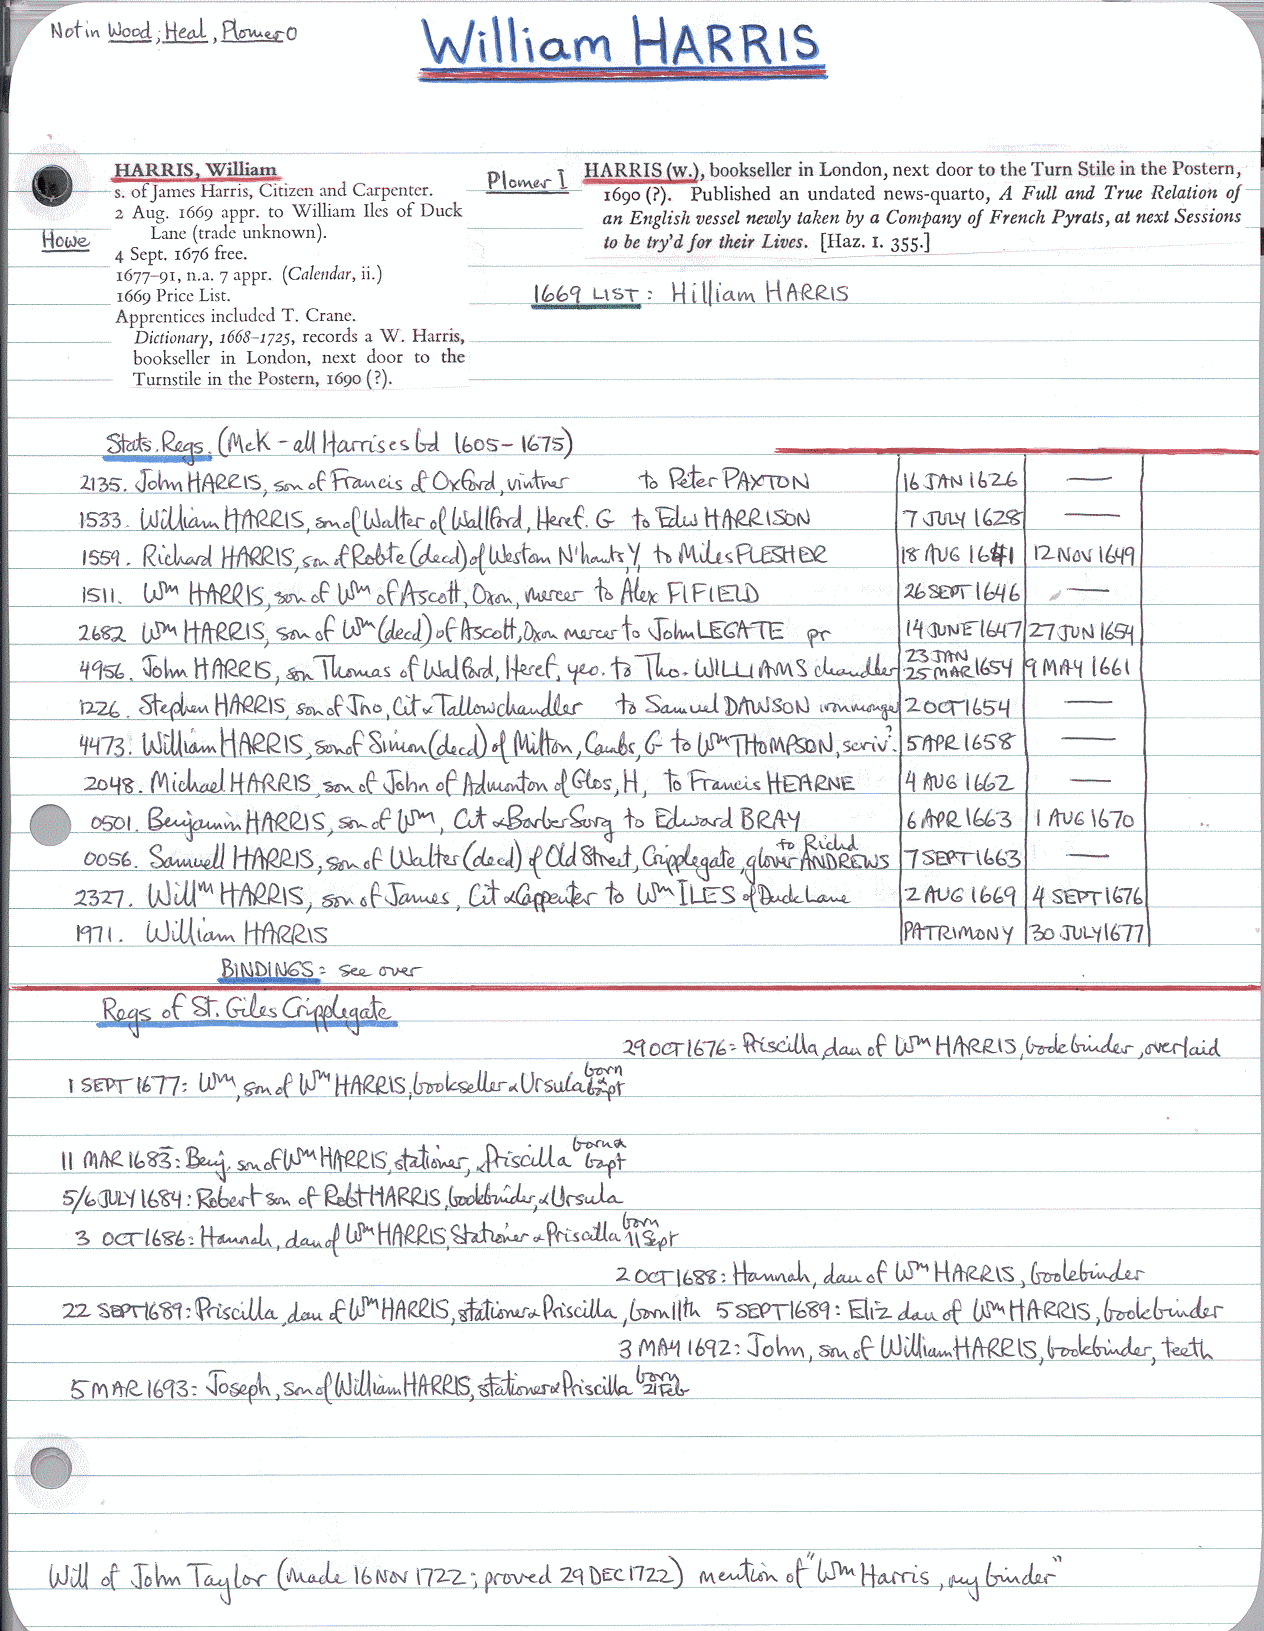 Not in Wood, Heal, Plomer O
William HARRIS
HARRIS, William
s. of James Harris, Citizen and Carpenter.
2 Aug. 1669 appr. to William Iles of Duck
Lane (trade unknown).
4 Sept. 1676 free.
1677–91, n.a. 7 appr. (Calendar, ii.)
1669 Price List.
Apprentices included T. Crane.
Dictionary, 1668–1725, records a W. Harris,
bookseller in London, next door to the
Turnstile in the Postern, 1690 (?).
Howe
Plomer I
HARRIS (W.), bookseller in London, next door to the Turn Stile in the Postern,
1690 (?). Published an undated news-quarto, A Full and True Relation of
an English vessel newly taken by a Company of French Pyrats, at next Sessions
to be try'd for their Lives. [Haz. I. 355.]
1669 LIST: Hilliam HARRIS
Stats. Regs. (McK – all Harrises bd 1605–1675)
2135. John HARRIS, son of Francis of Oxford, vintner to Peter PAXTON 16 JAN 1626 —
1533. William HARRIS, son of Walter of Wallford, Heref. G to Edw HARRISON 7 JULY 1628 —
1559. Richard HARRIS, son of Robte (decd) of Weston N'hants Y, to Miles FLESHER 18 AUG 1641 12 NOV 1649
1511. Wm HARRIS, son of Wm of Ascott, Oxon, mercer to Alex FIFIELD 26 SEPT 1646 —
2682 Wm HARRIS, son of Wm (decd) of Ascott, Oxon mercer to John LEGATE pr 14 JUNE 1647 27 JUN 1654
4956. John HARRIS, son Thomas of Walford, Heref, yeo. to Tho. WILLIAMS chandler 23 JAN 25 MAR 1654 9 MAY 1661
1226. Stephen HARRIS, son of Jno, Cit & Tallowchandler to Samuel DAWSON ironmonger 2 OCT 1654 —
4473. William HARRIS, son of Simon (decd) of Milton, Cambs, G to Wm THOMPSON, scriv? 5 APR 1658 —
2048. Michael HARRIS, son of John of Admonton of Glos, H, to Francis HEARNE 4 AUG 1662 —
0501. Benjamin HARRIS, son of Wm, Cit & Barber Surg to Edward BRAY 6 APR 1663 1 AUG 1670
0056. Samuell HARRIS, son of Walter (decd) of Old Street, Cripplegate, glover to Richd ANDREWS 7 SEPT 1663 —
2327. Willm HARRIS, son of James, Cit & Carpenter to Wm ILES of Duck Lane 2 AUG 1669 4 SEPT 1676
1971. William HARRIS PATRIMONY 30 JULY 1677
BINDINGS = see over
Regs of St. Giles Cripplegate
29 OCT 1676: Priscilla, dau of Wm HARRIS, bookbinder, overlaid
1 SEPT 1677: Wm, son of Wm HARRIS, bookseller & Ursula born & bapt
11 MAR 1683: Benj. son of Wm HARRIS, stationer, & Priscilla born & bapt
5/6 JULY 1684: Robert son of Robt HARRIS, bookbinder, & Ursula
3 OCT 1686: Hannah, dau of Wm HARRIS, Stationer & Priscilla born 11 Sept
2 OCT 1688: Hannah, dau of Wm HARRIS, bookebinder
22 SEPT 1689: Priscilla, dau of Wm HARRIS, stationer & Priscilla, born 11th 5 SEPT 1689: Eliz dau of Wm HARRIS, bookbinder
3 MAY 1692: John, son of William HARRIS, bookbinder, teeth
5 MAR 1693: Joseph, son of William HARRIS, stationer & Priscilla born 21 Feb
Will of John Taylor (made 16 NOV 1722; proved 29 DEC 1722) mention of "Wm Harris, my binder"